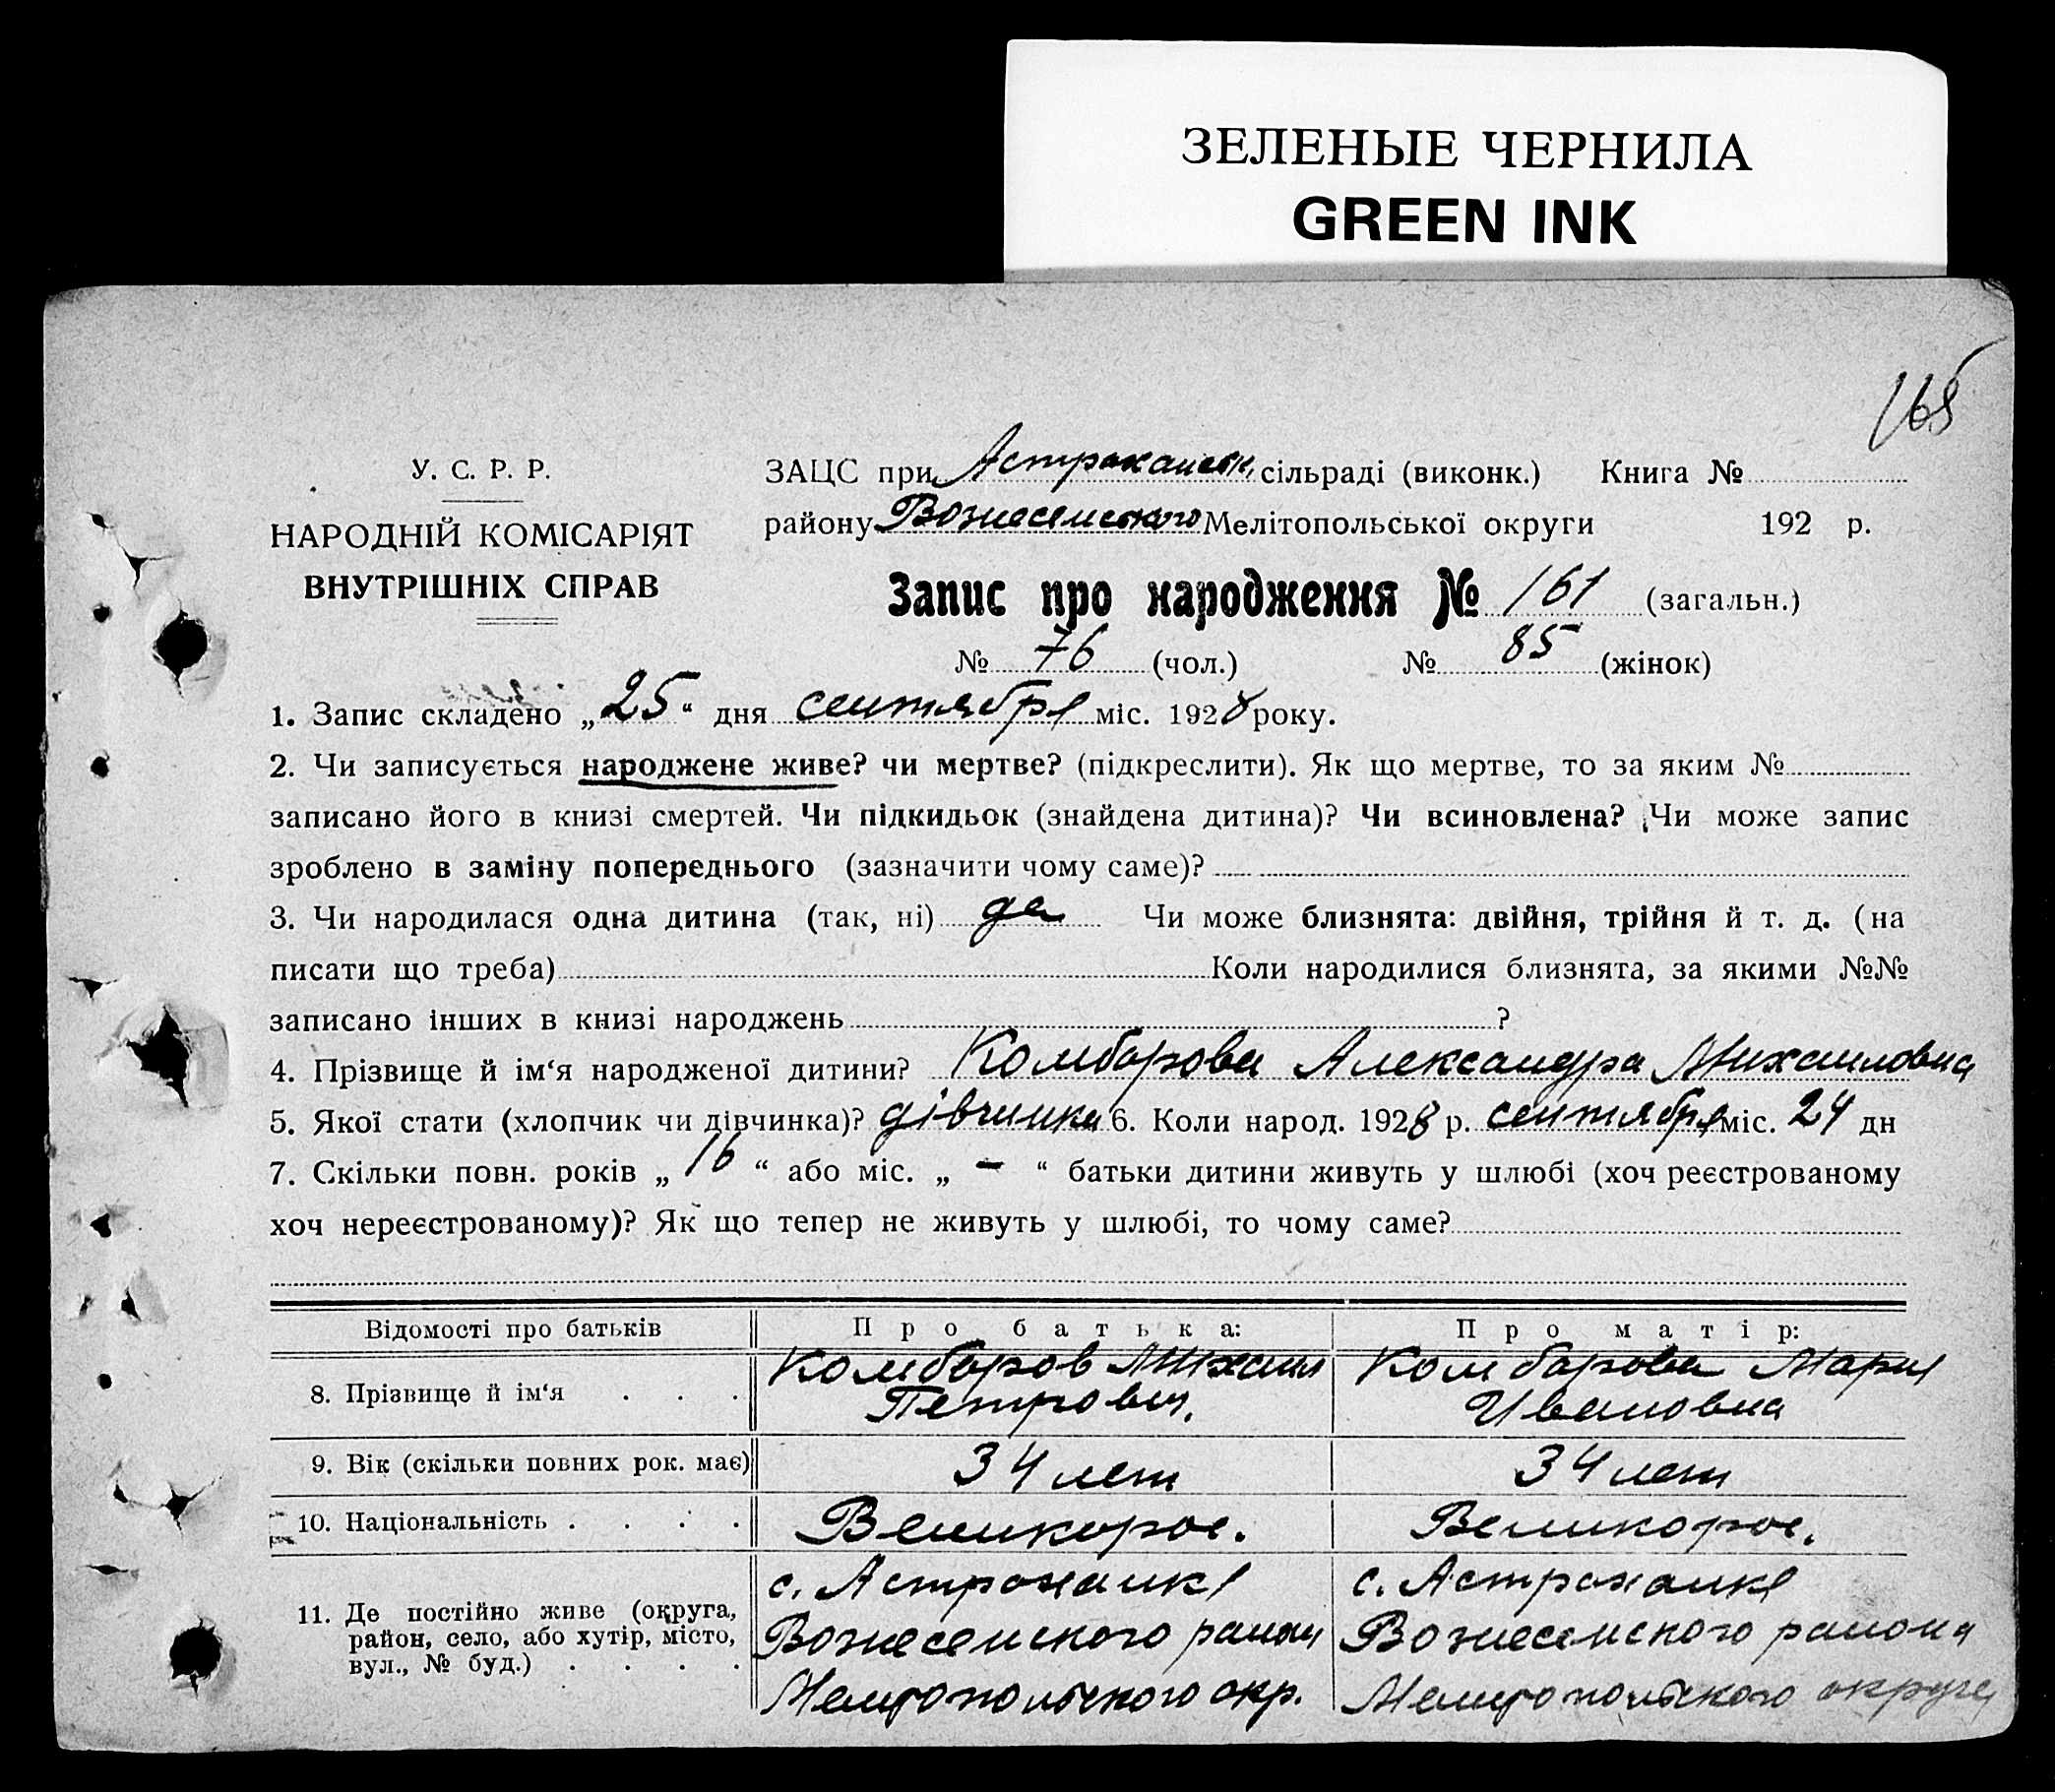 ЗЕЛЕНЫЕ ЧЕРНИЛА
GREEN INK
165
У. С. Р. Р.
НАРОДНІЙ КОМІСАРІЯТ
ВНУТРІШНІХ СПРАВ
ЗАЦС при Астраханськ. сільраді (виконк.) Книга №
району Вознесенського Мелітопольської округи 192 р.
Запис про народження № 161 (загальн.)
№ 76 (чол.) № 85 (жінок)
1. Запис складено „25“ дня сентября міс. 1928 року.
2. Чи записується народжене живе? чи мертве? (підкреслити). Як що мертве, то за яким №
записано його в книзі смертей. Чи підкидьок (знайдена дитина)? Чи всиновлена? Чи може запис
зроблено в заміну попереднього (зазначити чому саме)?
3. Чи народилася одна дитина (так, ні) да Чи може близнята: двійня, трійня й т. д. (на
писати що треба) Коли народилися близнята, за якими №№
записано інших в книзі народжень ?
4. Прізвище й ім‘я народженої дитини? Комбарова Александра Михаиловна
5. Якої стати (хлопчик чи дівчинка)? дівчинка 6. Коли народ. 1928 р. сентября міс. 24 дн
7. Скільки повн. років „ 16 “ або міс. „ – “ батьки дитини живуть у шлюбі (хоч реєстрованому
хоч нереєстрованому)? Як що тепер не живуть у шлюбі, то чому саме?
Відомості про батьків Про батька: Про матір:
8. Прізвище й ім‘я . . . Комбаров Михаил Комбарова Мария
Петрович. Ивановна
9. Вік (скільки повних рок. має) 34 лет 34 лет
10. Національність . . . . Великорос. Великорос.
11. Де постійно живе (округа, с. Астраханка с. Астраханка
район, село, або хутір, місто, Вознесенского района Вознесенского района
вул., № буд.) . . . . Мелитопольского окр. Мелитопольского округа